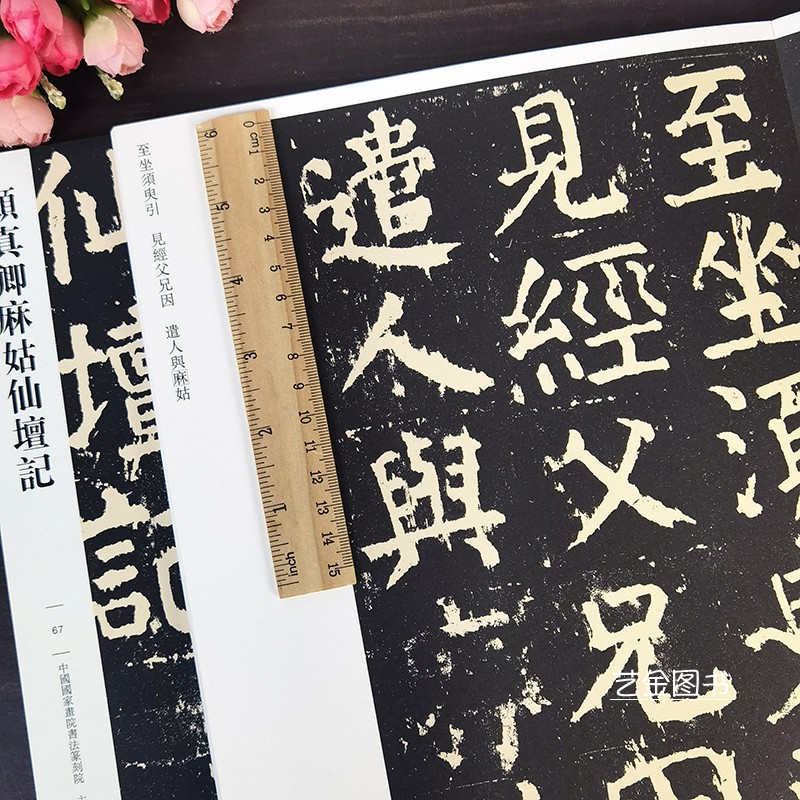 至坐須
見經父兄因
遣人與麻姑
至坐須臾引 見經父兄因 遣人與麻姑
仙壇記
顏真卿麻姑仙壇記
67
中國國家畫院書法篆刻院
0 cm 1 2 3 4 5 6 7 8 9 10 11 12 13 14 15
inch 1 2 3 4 5 6
艺金图书